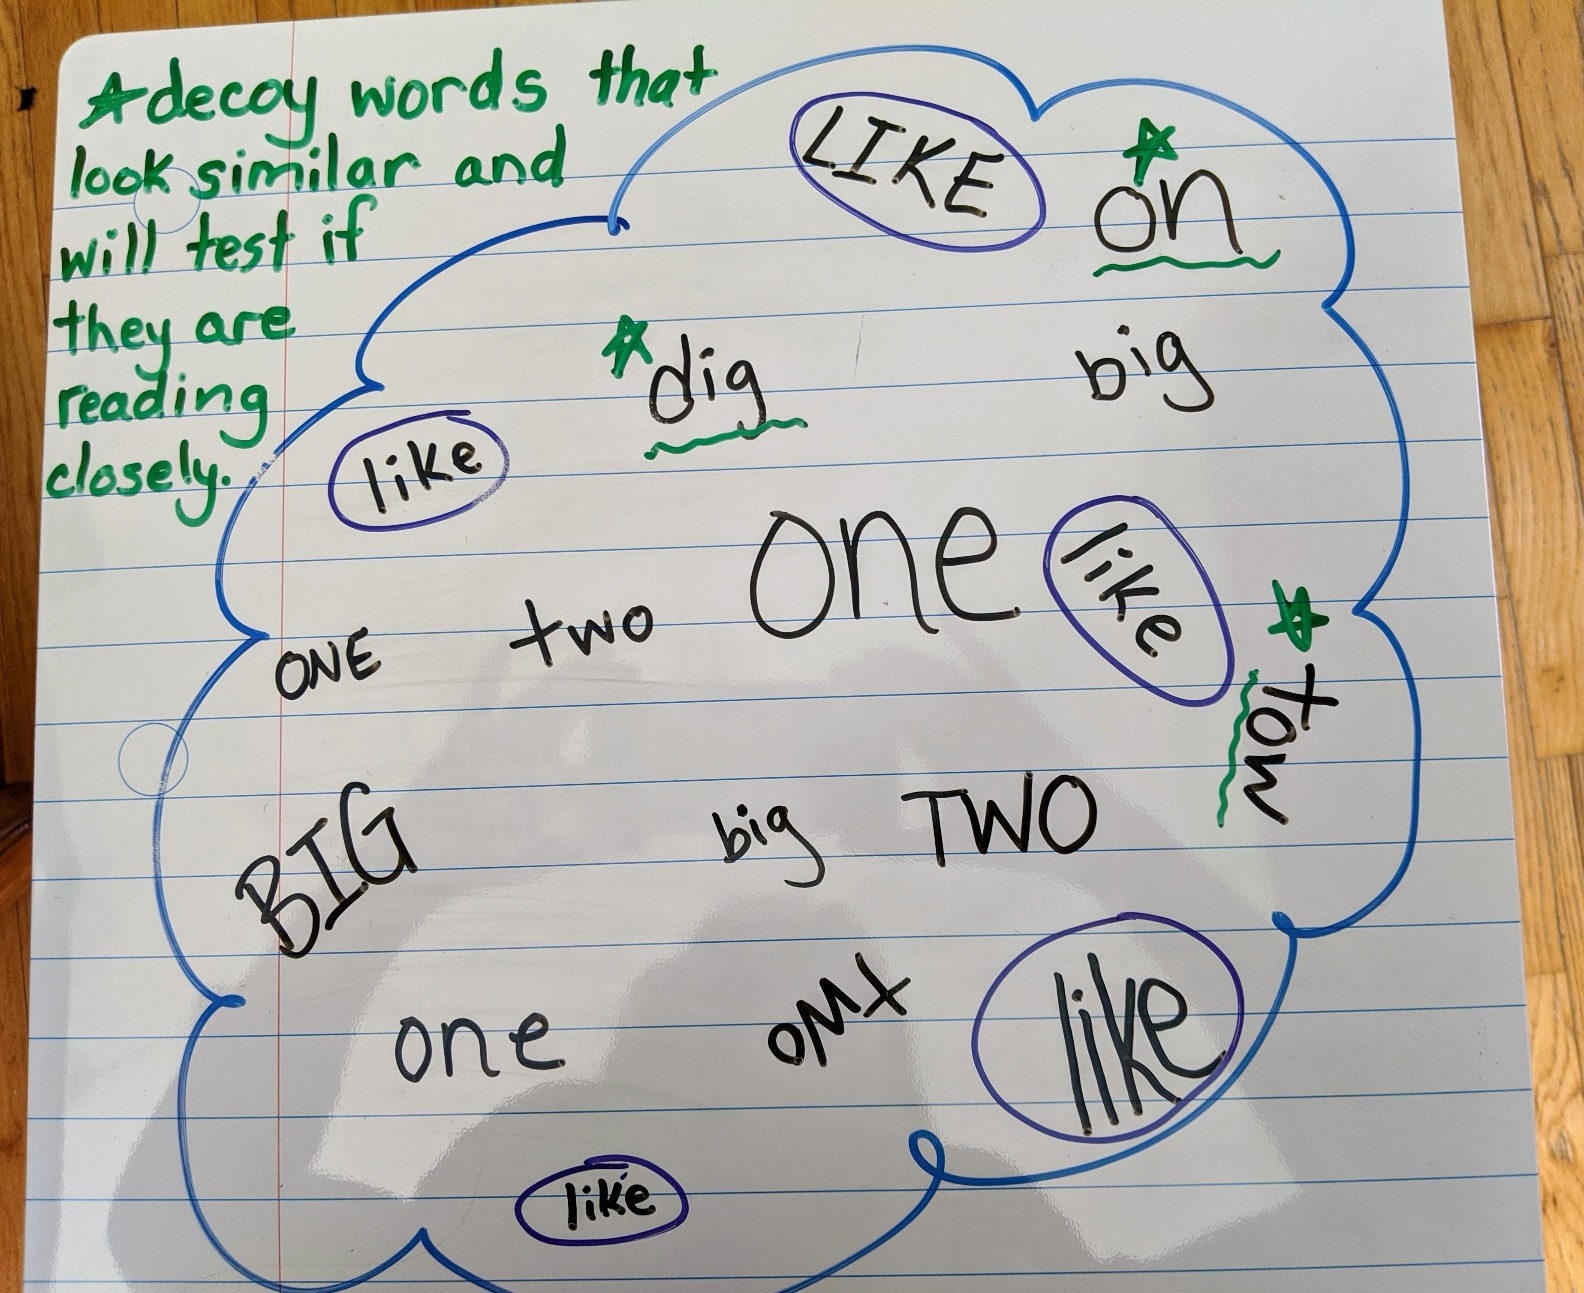 decoy words that
look similar and
will test if
they are
reading
closely.
LIKE
on
dig
big
like
one
like
ONE
two
tow
BIG
big
TWO
one
two
like
like